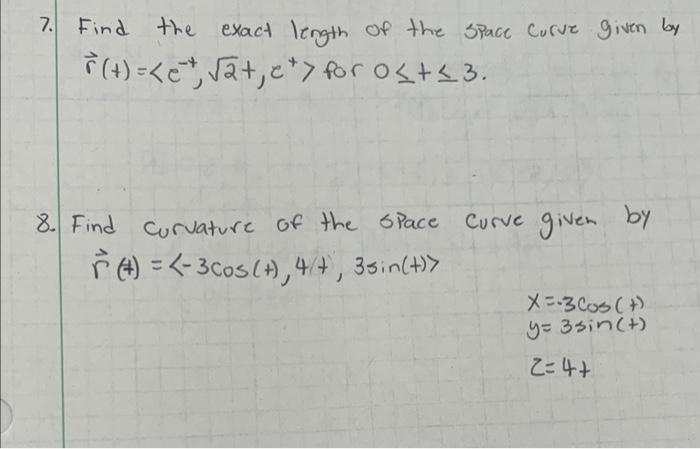 7. Find the exact length of the space curve given by
r⃗(t)=<e⁻ᵗ, √2t, eᵗ> for 0≤t≤3.
8. Find curvature of the space curve given by
r⃗(t) = <-3cos(t), 4t, 3sin(t)>
x=-3cos(t)
y=3sin(t)
z=4t